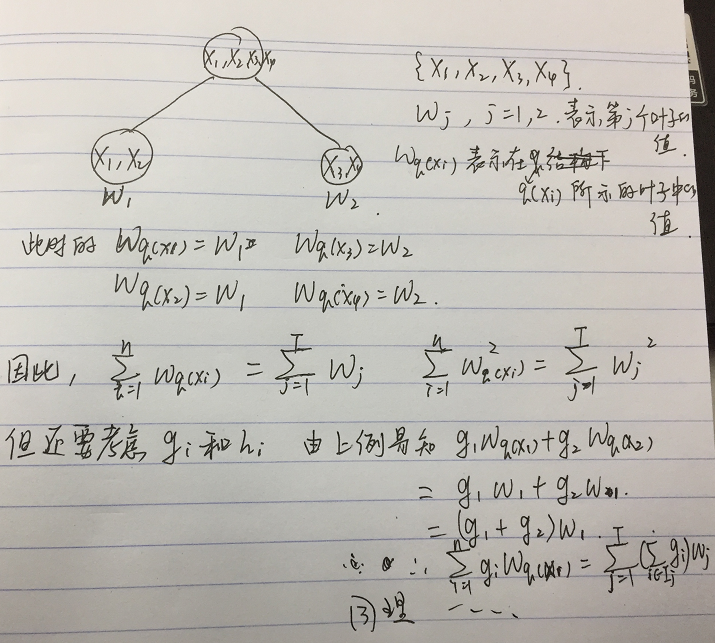 X₁,X₂,X₃,X₄
{X₁,X₂,X₃,X₄}.
X₁,X₂
X₃,X₄
W₁
W₂
Wⱼ, j=1,2.表示第j个叶子的值.
W_q(xᵢ) 表示在q结构下
q(xᵢ)所示的叶子中的值.
此时的 W_q(x₁)=W₁ W_q(x₃)=W₂
W_q(x₂)=W₁ W_q(x₄)=W₂.
因此, ∑_{i=1}^{n} W_q(xᵢ) = ∑_{j=1}^{T} Wⱼ ∑_{i=1}^{n} W²_q(xᵢ) = ∑_{j=1}^{T} Wⱼ²
但还要考虑 gᵢ和hᵢ 由上例易知 g₁W_q(x₁)+g₂W_q(x₂)
= g₁W₁+g₂W₁.
= (g₁+g₂)W₁.
∴ ∑_{i=1}^{n} gᵢW_q(xᵢ) = ∑_{j=1}^{T} (∑_{i∈Iⱼ} gᵢ)Wⱼ
同理 ----.